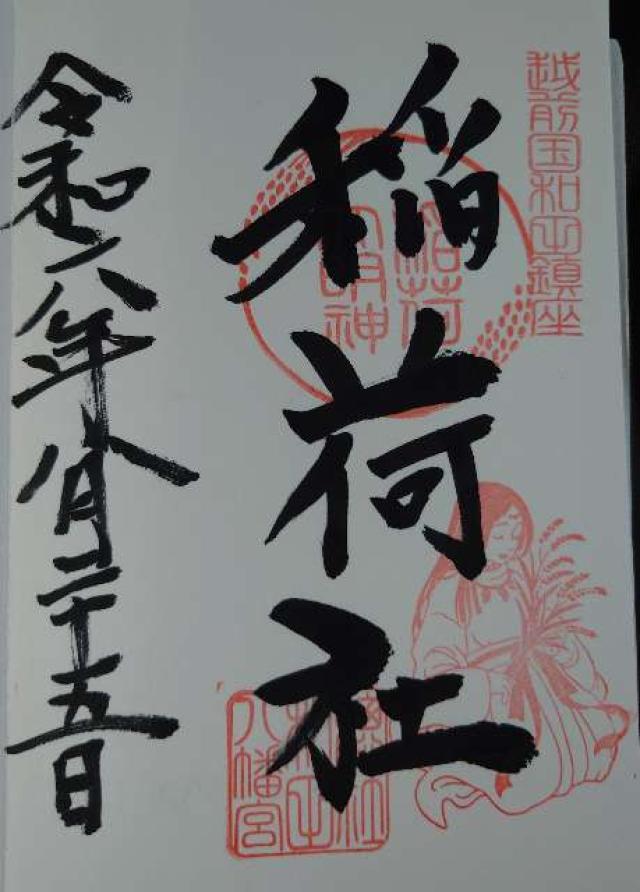 越前国和田鎮座
稲荷社
稲荷
大明神
八幡宮
令和六年八月二十五日